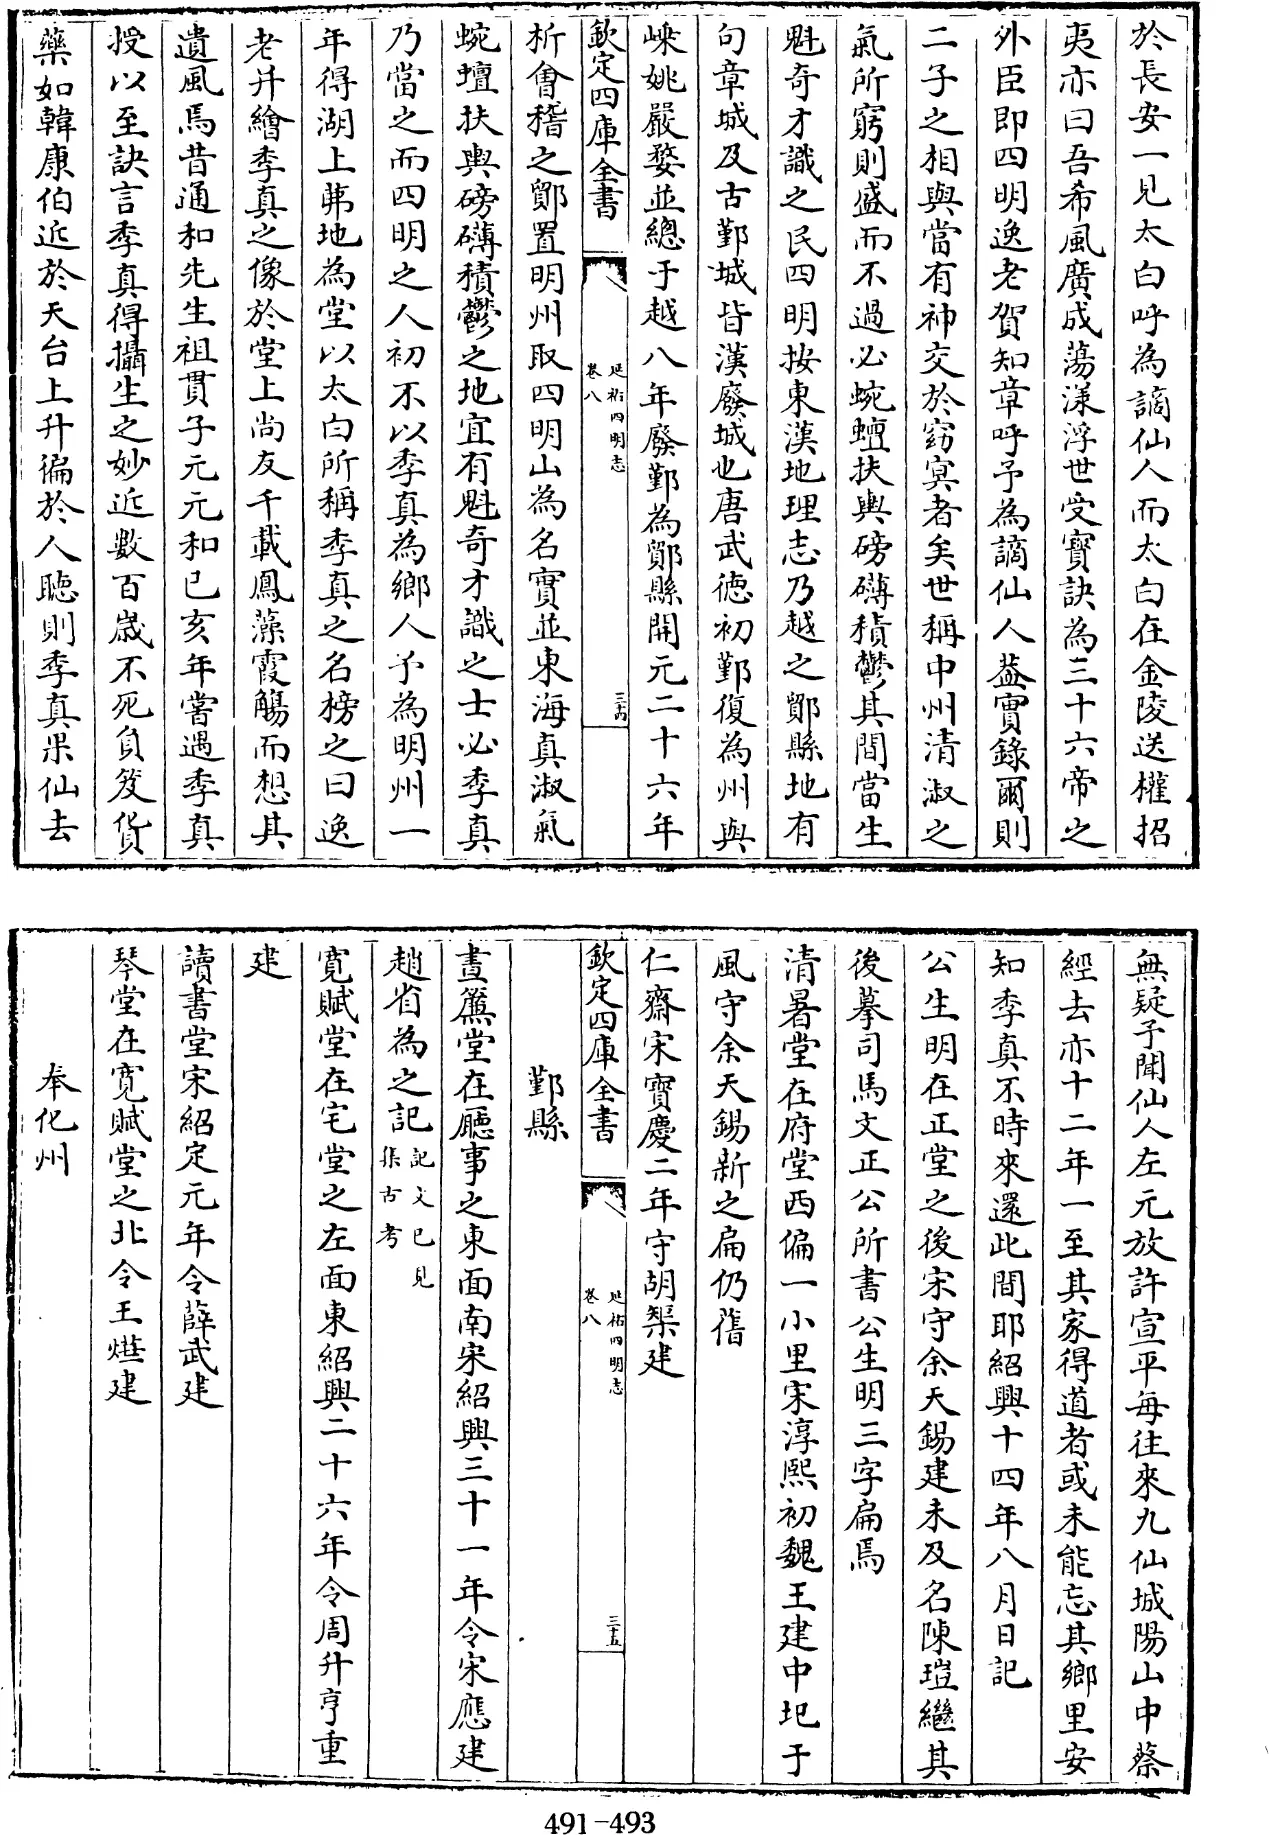 於長安一見太白呼為謫仙人而太白在金陵送權招
夷亦曰吾希風廣成蕩漾浮世受寳訣為三十六帝之
外臣即四明逸老賀知章呼予為謫仙人葢實錄爾則
二子之相與當有神交於窈冥者矣世稱中州清淑之
氣所窮則盛而不過必蜿蟺扶輿磅礴積鬱其間當生
魁奇才識之民四明按東漢地理志乃越之鄮縣地有
句章城及古鄞城皆漢廢城也唐武徳初鄞復為州與
嵊姚嚴婺並總于越八年廢鄞為鄮縣開元二十六年
欽定四庫全書
延祐四明志
卷八
三十四
析㑹稽之鄮置明州取四明山為名實並東海真淑氣
蜿蟺扶輿磅礴積鬱之地宜有魁奇才識之士必季真
乃當之而四明之人初不以季真為鄉人予為明州一
年得湖上弗地為堂以太白所稱季真之名榜之曰逸
老并繪季真之像於堂上尚友千載鳳藻霞觴而想其
遺風焉昔通和先生祖貫子元元和已亥年嘗遇季真
授以至訣言季真得攝生之妙近數百歳不死負笈貨
藥如韓康伯近於天台上升徧於人聽則季真果仙去
無疑予聞仙人左元放許宣平每往來九仙城陽山中蔡
經去亦十二年一至其家得道者或未能忘其鄉里安
知季真不時來還此間耶紹興十四年八月日記
公生明在正堂之後宋守余天錫建未及名陳塏繼其
後摹司馬文正公所書公生明三字扁焉
清暑堂在府堂西偏一小里宋淳熙初魏王建中圯于
風守余天錫新之扁仍舊
仁齋宋寳慶二年守胡榘建
欽定四庫全書
延祐四明志
卷八
三十五
鄞縣
晝簾堂在廳事之東面南宋紹興三十一年令宋應建
趙省為之記記文已見
集古考
寛賦堂在宅堂之左面東紹興二十六年令周升亨重
建
讀書堂宋紹定元年令薛武建
琴堂在寛賦堂之北令王㷼建
奉化州
491-493